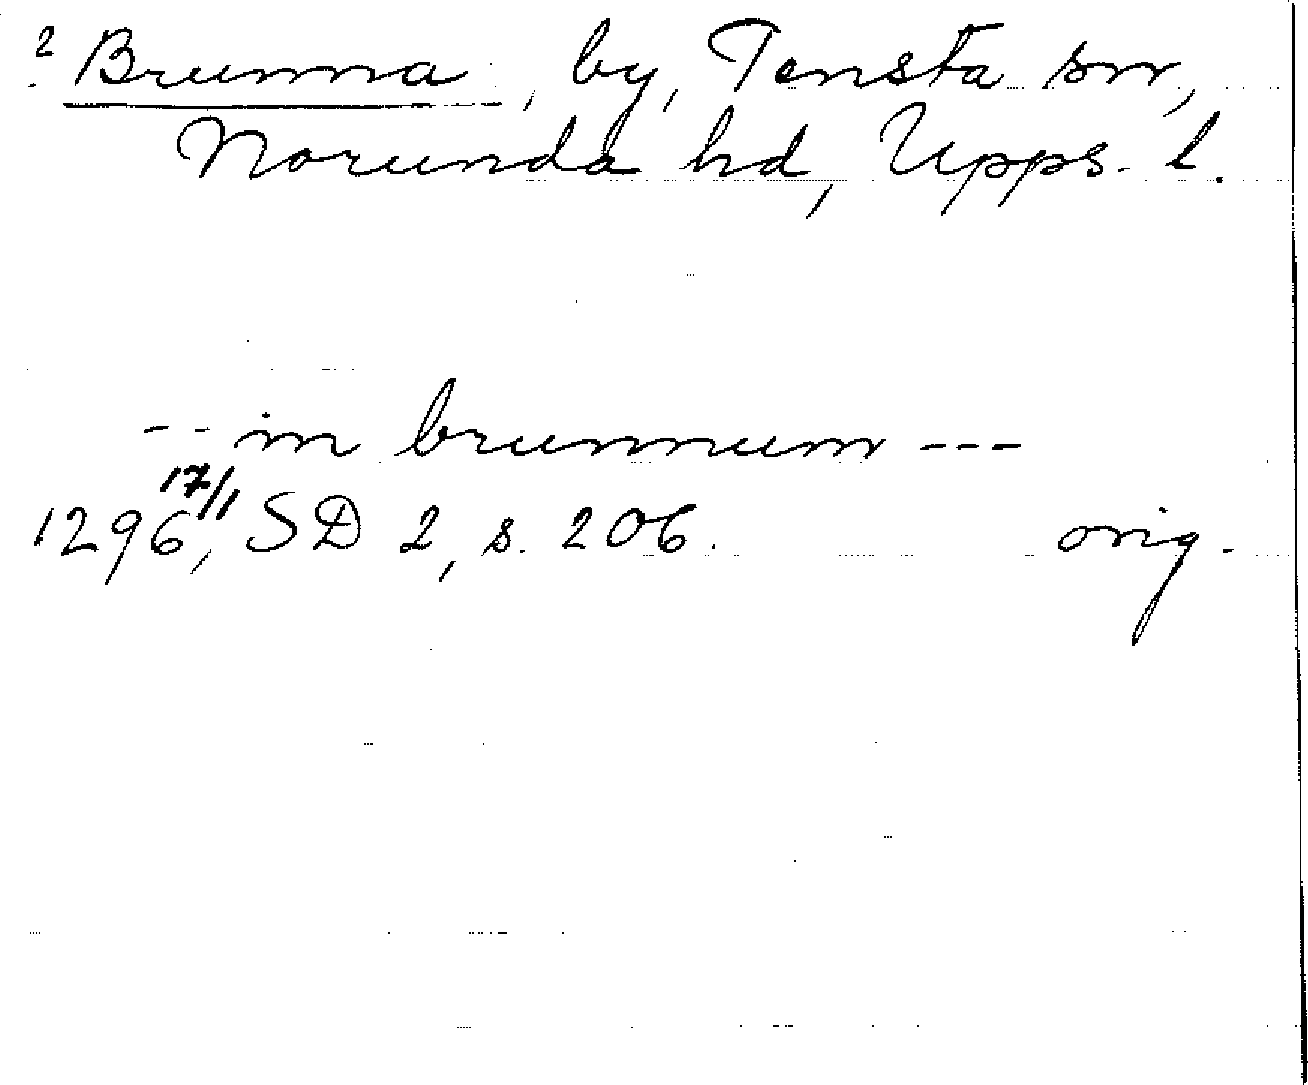 ? Brunna, by, Tensta sn,
Norunda hd, Upps. l.
-- in brunnum ---
1296 17/1, SD 2, s. 206. orig.